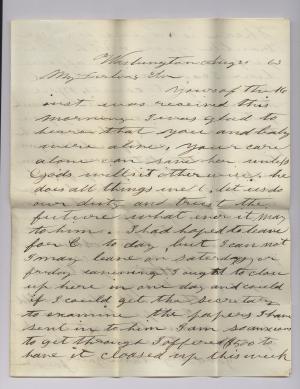 Washington Aug 63
My
Yours of the 16
inst was received this
morning I was glad to
heare that you and baby
were alive, your care
alone can save her unless
Gods will it otherwise, he
does all things well, let us do
our duty and trust the
future what ever it may
to him. I had hoped to leave
for to day, but I can not
I may leave on saturday or
friday evening I ought to close
up here in one day and could
if I could get the secretary
to examine the papers I have
sent in to him I am so anxious
to get through I offered $500 to
have it closed up this week